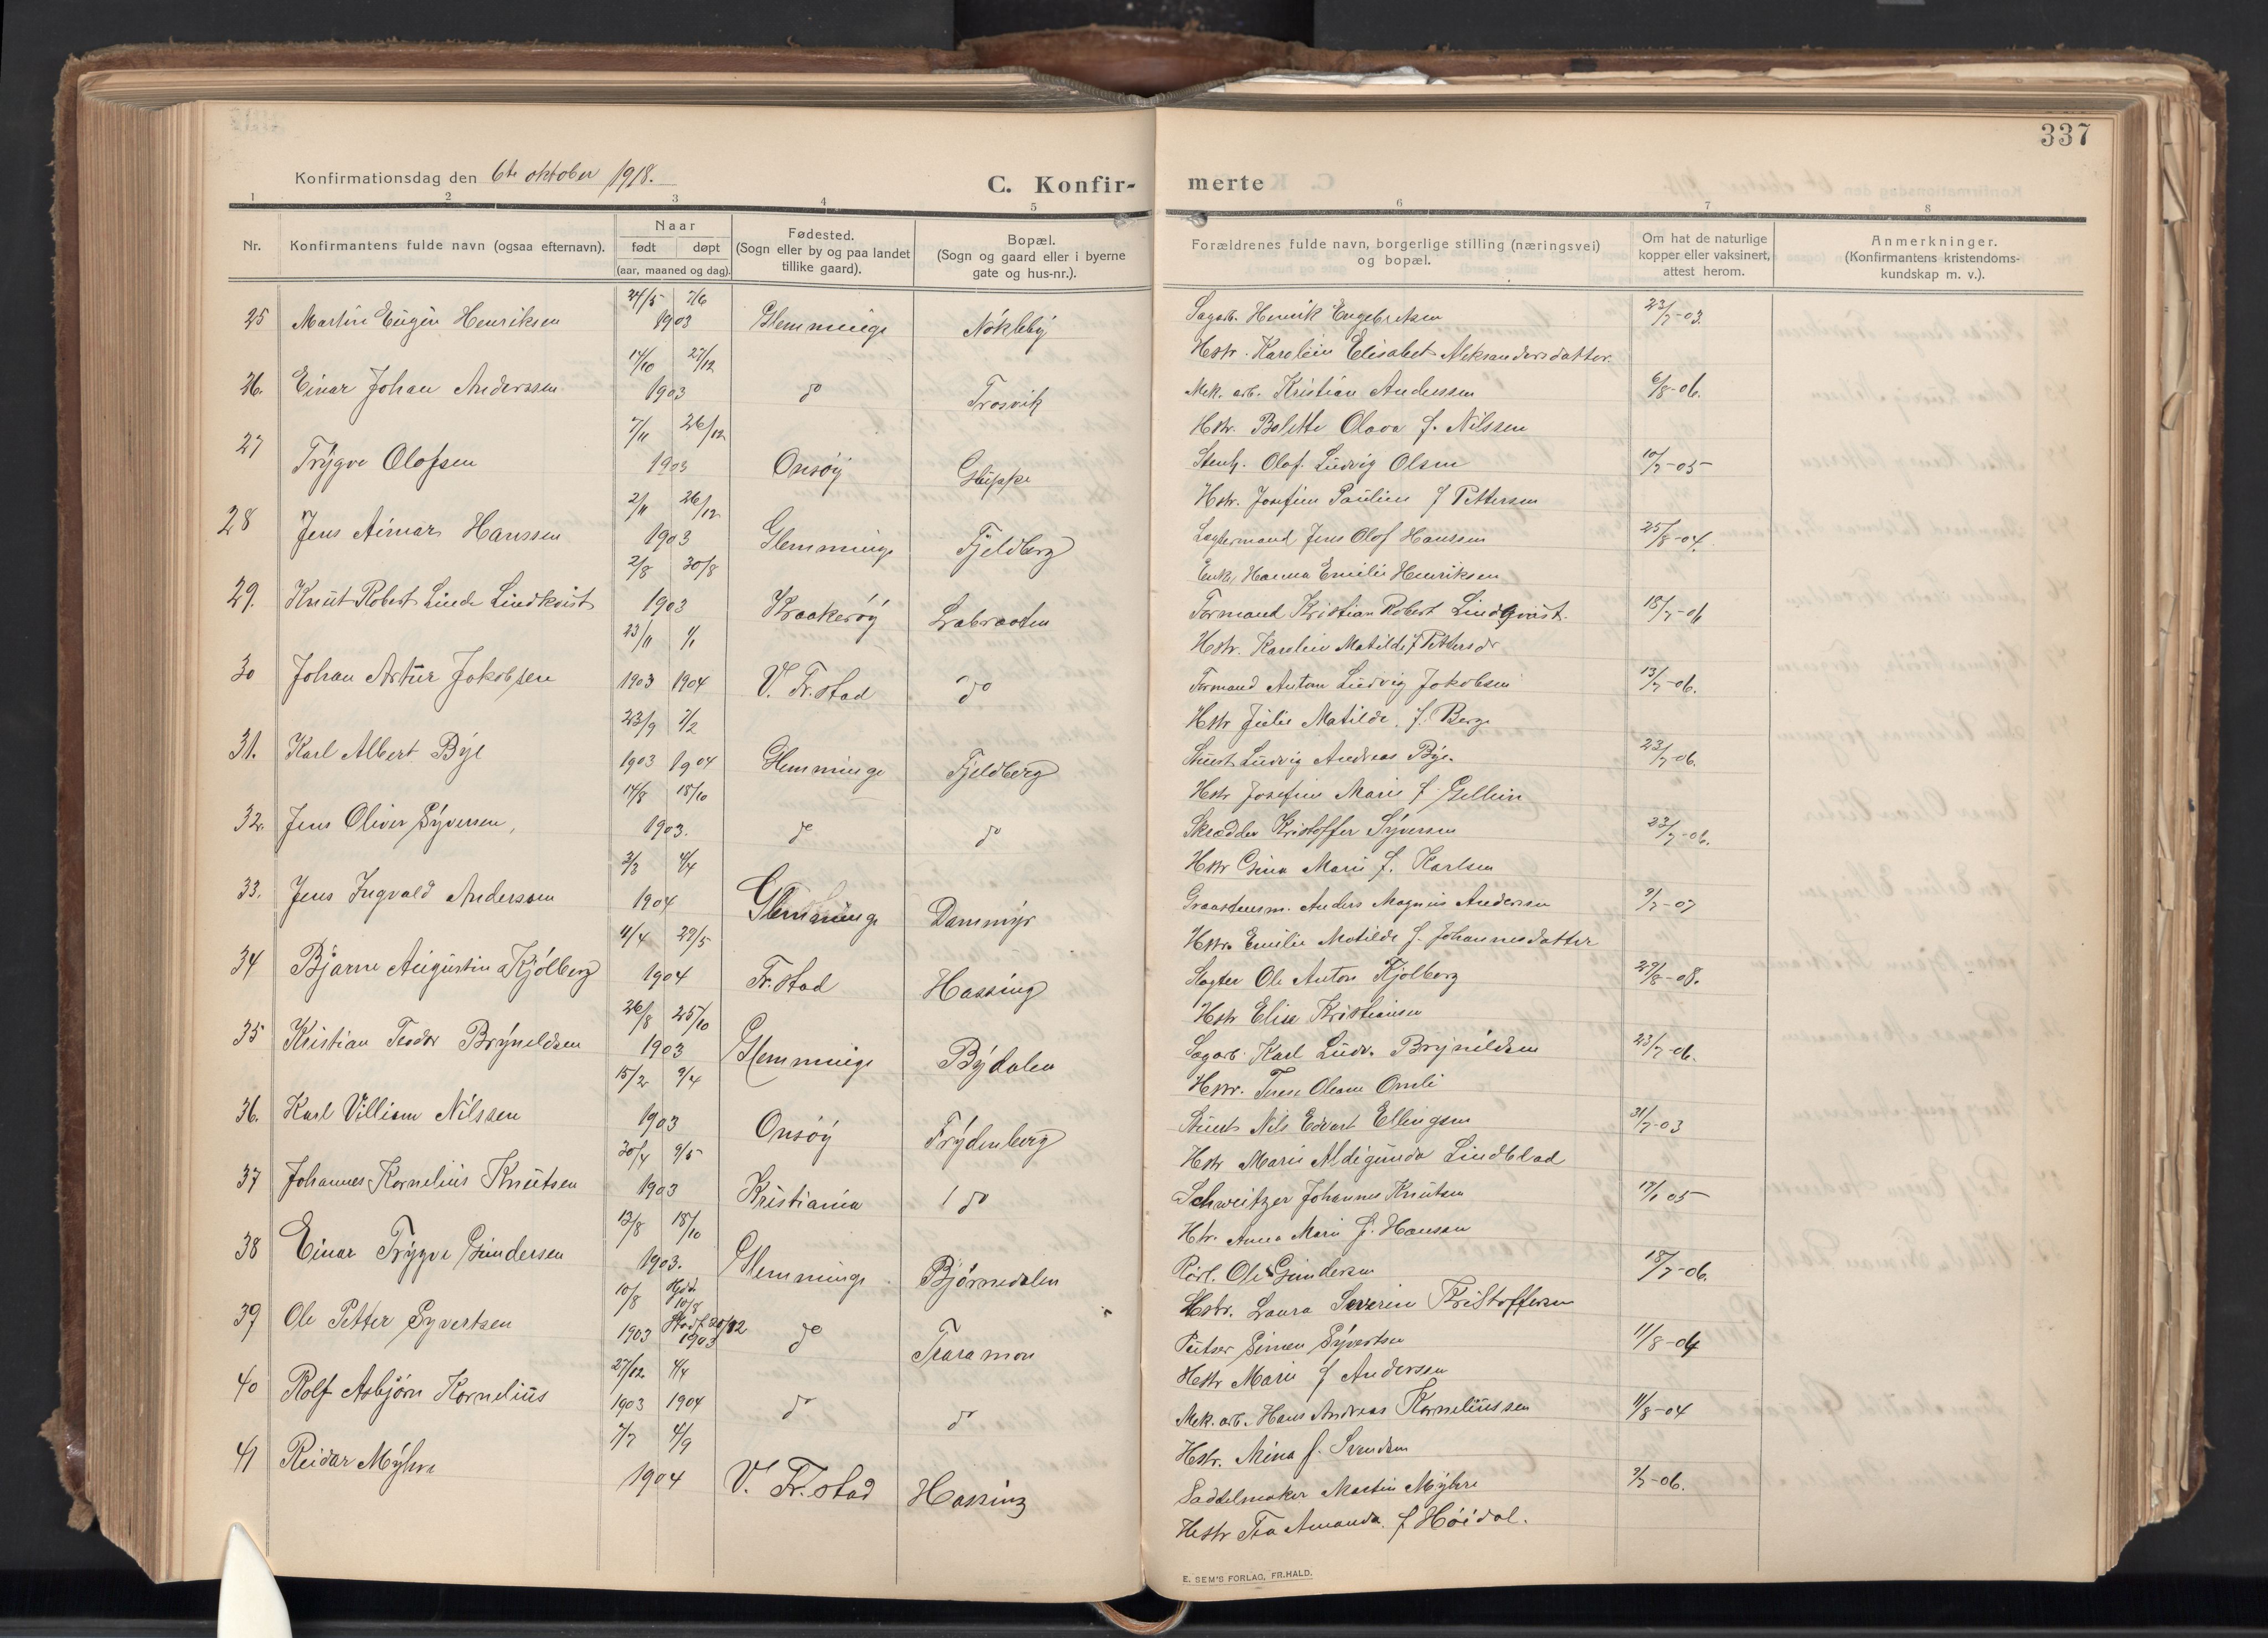 337
Konfirmationsdag den 6te oktober 1918.
C. Konfir-
merte
1 2 3 4 5 6 7 8
Nr.
Konfirmantens fulde navn (ogsaa efternavn).
Naar
født døpt
(aar, maaned og dag).
Fødested.
(Sogn eller by og paa landet
tillike gaard).
Bopæl.
(Sogn og gaard eller i byerne
gate og hus-nr.).
Forældrenes fulde navn, borgerlige stilling (næringsvei)
og bopæl.
Om hat de naturlige
kopper eller vaksinert,
attest herom.
Anmerkninger.
(Konfirmantens kristendoms-
kundskap m. v.).
24/5 7/6
25 Martin Eugen Henriksen 1903 Glemminge Nökleby Sagarb. Henrik Engebretsen 23/7-03.
Hstr. Karoline Elisabet Aleksandersdatter.
14/10 27/12
26. Einar Johan Anderssen 1903 do Trosvik Mek. arb. Kristian Anderssen 6/8-06.
Hstr. Bolette Olava f. Nilssen
7/11 26/12
27 Trygve Olofsen 1903 Onsöy Gluppe Stenh. Olof Ludvig Olsen 10/7-05
Hstr. Josefine Pauline f Pettersen
2/11 26/12
28 Jens Aimar Hanssen 1903 Glemminge Fjeldberg Lagtermand Jens Olof Hanssen 25/8-04.
Enk, Hanna Emilie Henriksen
2/8 30/8
29. Knut Robert Linde Lindkvist 1903 Kraakeröy Labraaten Formand Kristian Robert Lindqvist. 18/7-06
Hstr. Karoline Matilde f Pettersdr
23/11 1/1
30 Johan Artur Jakobsen 1903 1904 V. Fr.stad do Formand Anton Ludvig Jakobsen 13/7-06.
Hstr Julie Matilde. f. Berge
23/9 7/2
31. Karl Albert Bye 1903 1904 Glemminge Fjeldberg Ludvig Andreas Bye. 23/7-06.
Hstr Josefine Marie f Gellein
14/8 18/10
32. Jens Oliver Syversen, 1903. do do Skrædder Kristoffer Syversen 23/7-06.
Hstr Gina Marie f. Karlsen
3/3 4/4
33. Jens Ingvald Anderssen 1904 Glemminge Dammyr Graastensm. Anders Magnus Andersen 9/7-07
Hstr. Emilie Matilde f. Johannesdatter
11/4 29/5
34 Bjarne Augustin Kjölberg 1904 Fr.stad Hassing Slagter Ole Anton Kjølberg 29/8-08.
Hstr Elise Kristiansen
26/8 25/10
35 Kristian Teodor Bryneldsen 1903 Glemminge Bydalen Sagarb. Karl Ludv. Brynildsen 23/7-06.
Hstr. Terese Oleane Omli
15/2 9/4
36. Karl Villiam Nilssen 1903 Onsöy Frydenberg Nils Edvart Ellingsen 31/7-03
Hstr Marie Aldigunda Lindblad
30/4 9/5
37 Johannes Kornelius Knutsen 1903 Kristiania do Schweitzer Johannes Knutsen 17/1 05
Htr. Anna Marie f. Hansen
13/8 18/10
38 Einar Trygve Gundersen 1903. Glemminge Björnedalen Pörl. Ole Gundersen 18/7-06.
Hstr. Laura Severine Kristoffersen
10/8 Hjd. 10/8
39 Ole Petter Syvertsen 1903 Stadf. 20/12 1903 do Traramon Putser Simen Syvertsen 11/8-04
Hstr Marie f Anderssen
27/12 4/4
40 Rolf Asbjørn Kornelius 1903 1904 do do Mek. arb. Hans Andreas Korneliussen 11/8-04
Hstr. Mina f. Svendsen
7/7 4/9
41 Reidar Myhre 1904 V. Fr.stad Hassing Saddelmaker Martin Myhre 9/7-06.
Hstr Tea Amanda. f Höidal.
E. SEM'S FORLAG, FR.HALD.